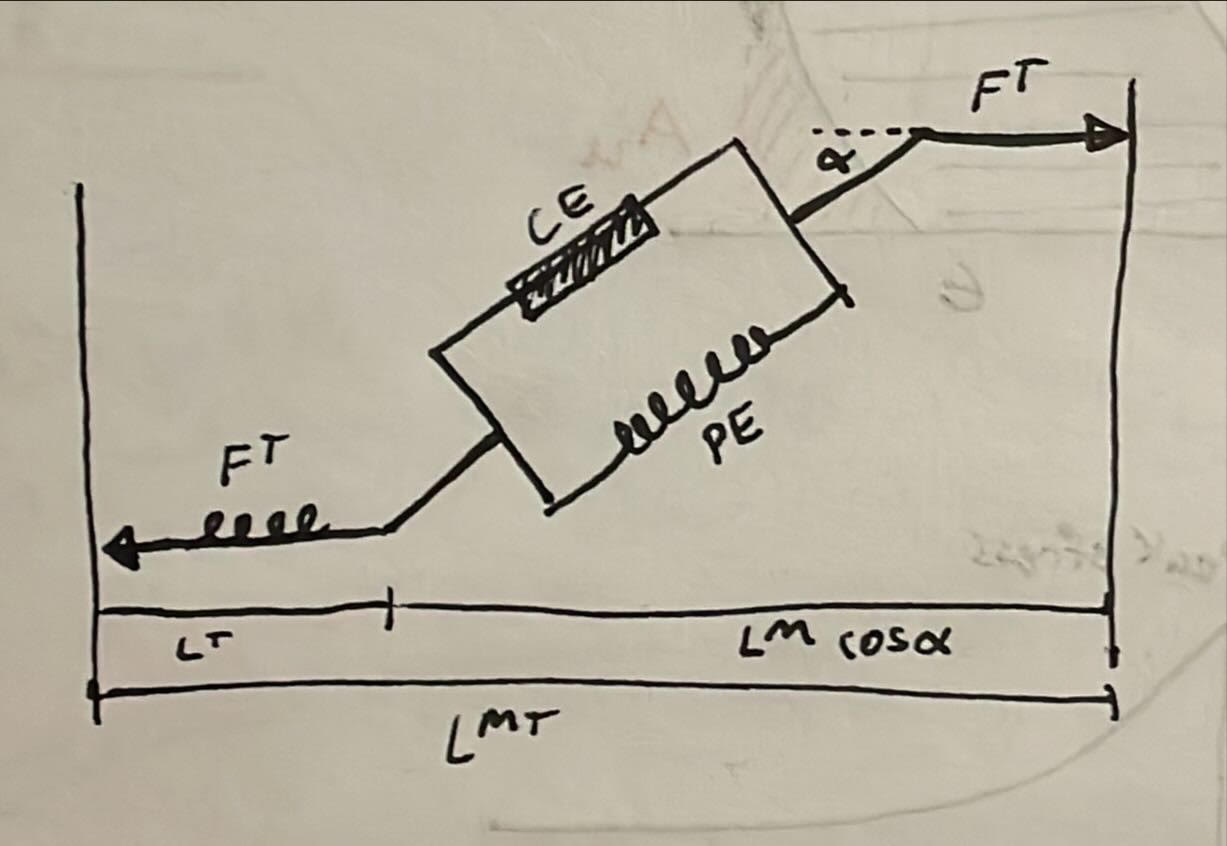 F^T
α
CE
PE
F^T
L^T
L^M cosα
L^MT